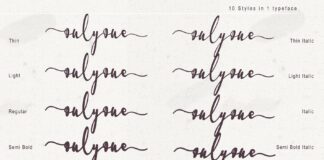 10 Styles in 1 typeface
Thin onlyone onlyone Thin Italic
Light onlyone onlyone Light Italic
Regular onlyone onlyone Italic
Semi Bold onlyone onlyone Semi Bold Italic